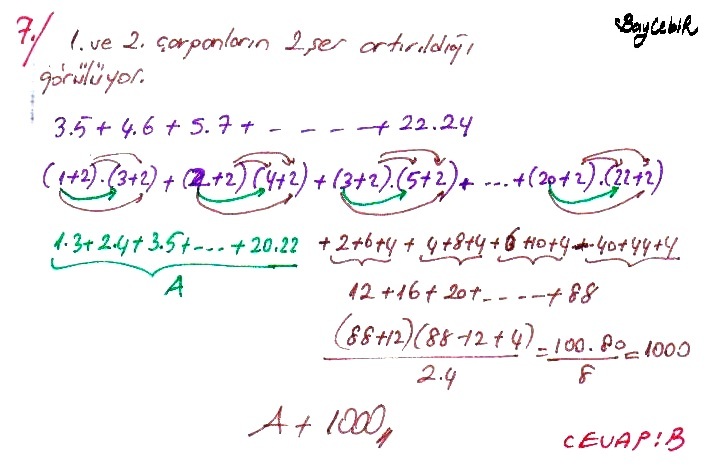 7./ 1. ve 2. çarpanların 2şer artırıldığı
BayCebir
görülüyor.
3.5 + 4.6 + 5.7 + - - - - + 22.24
(1+2).(3+2) + (2+2)(4+2) + (3+2).(5+2) + ... + (20+2).(22+2)
1.3+2.4+3.5+-...+20.22 + 2+6+4 + 4+8+4 + 6+10+4 + 40+44+4
A
12+16+20+-...-+88
(88+12)(88-12+4)/2.4 = 100.80/8 = 1000
A + 1000,,
CEVAP: B